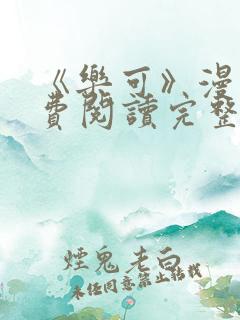 《樂可》漫
費閱讀完整
煙鬼老白
未任同意禁止轉載